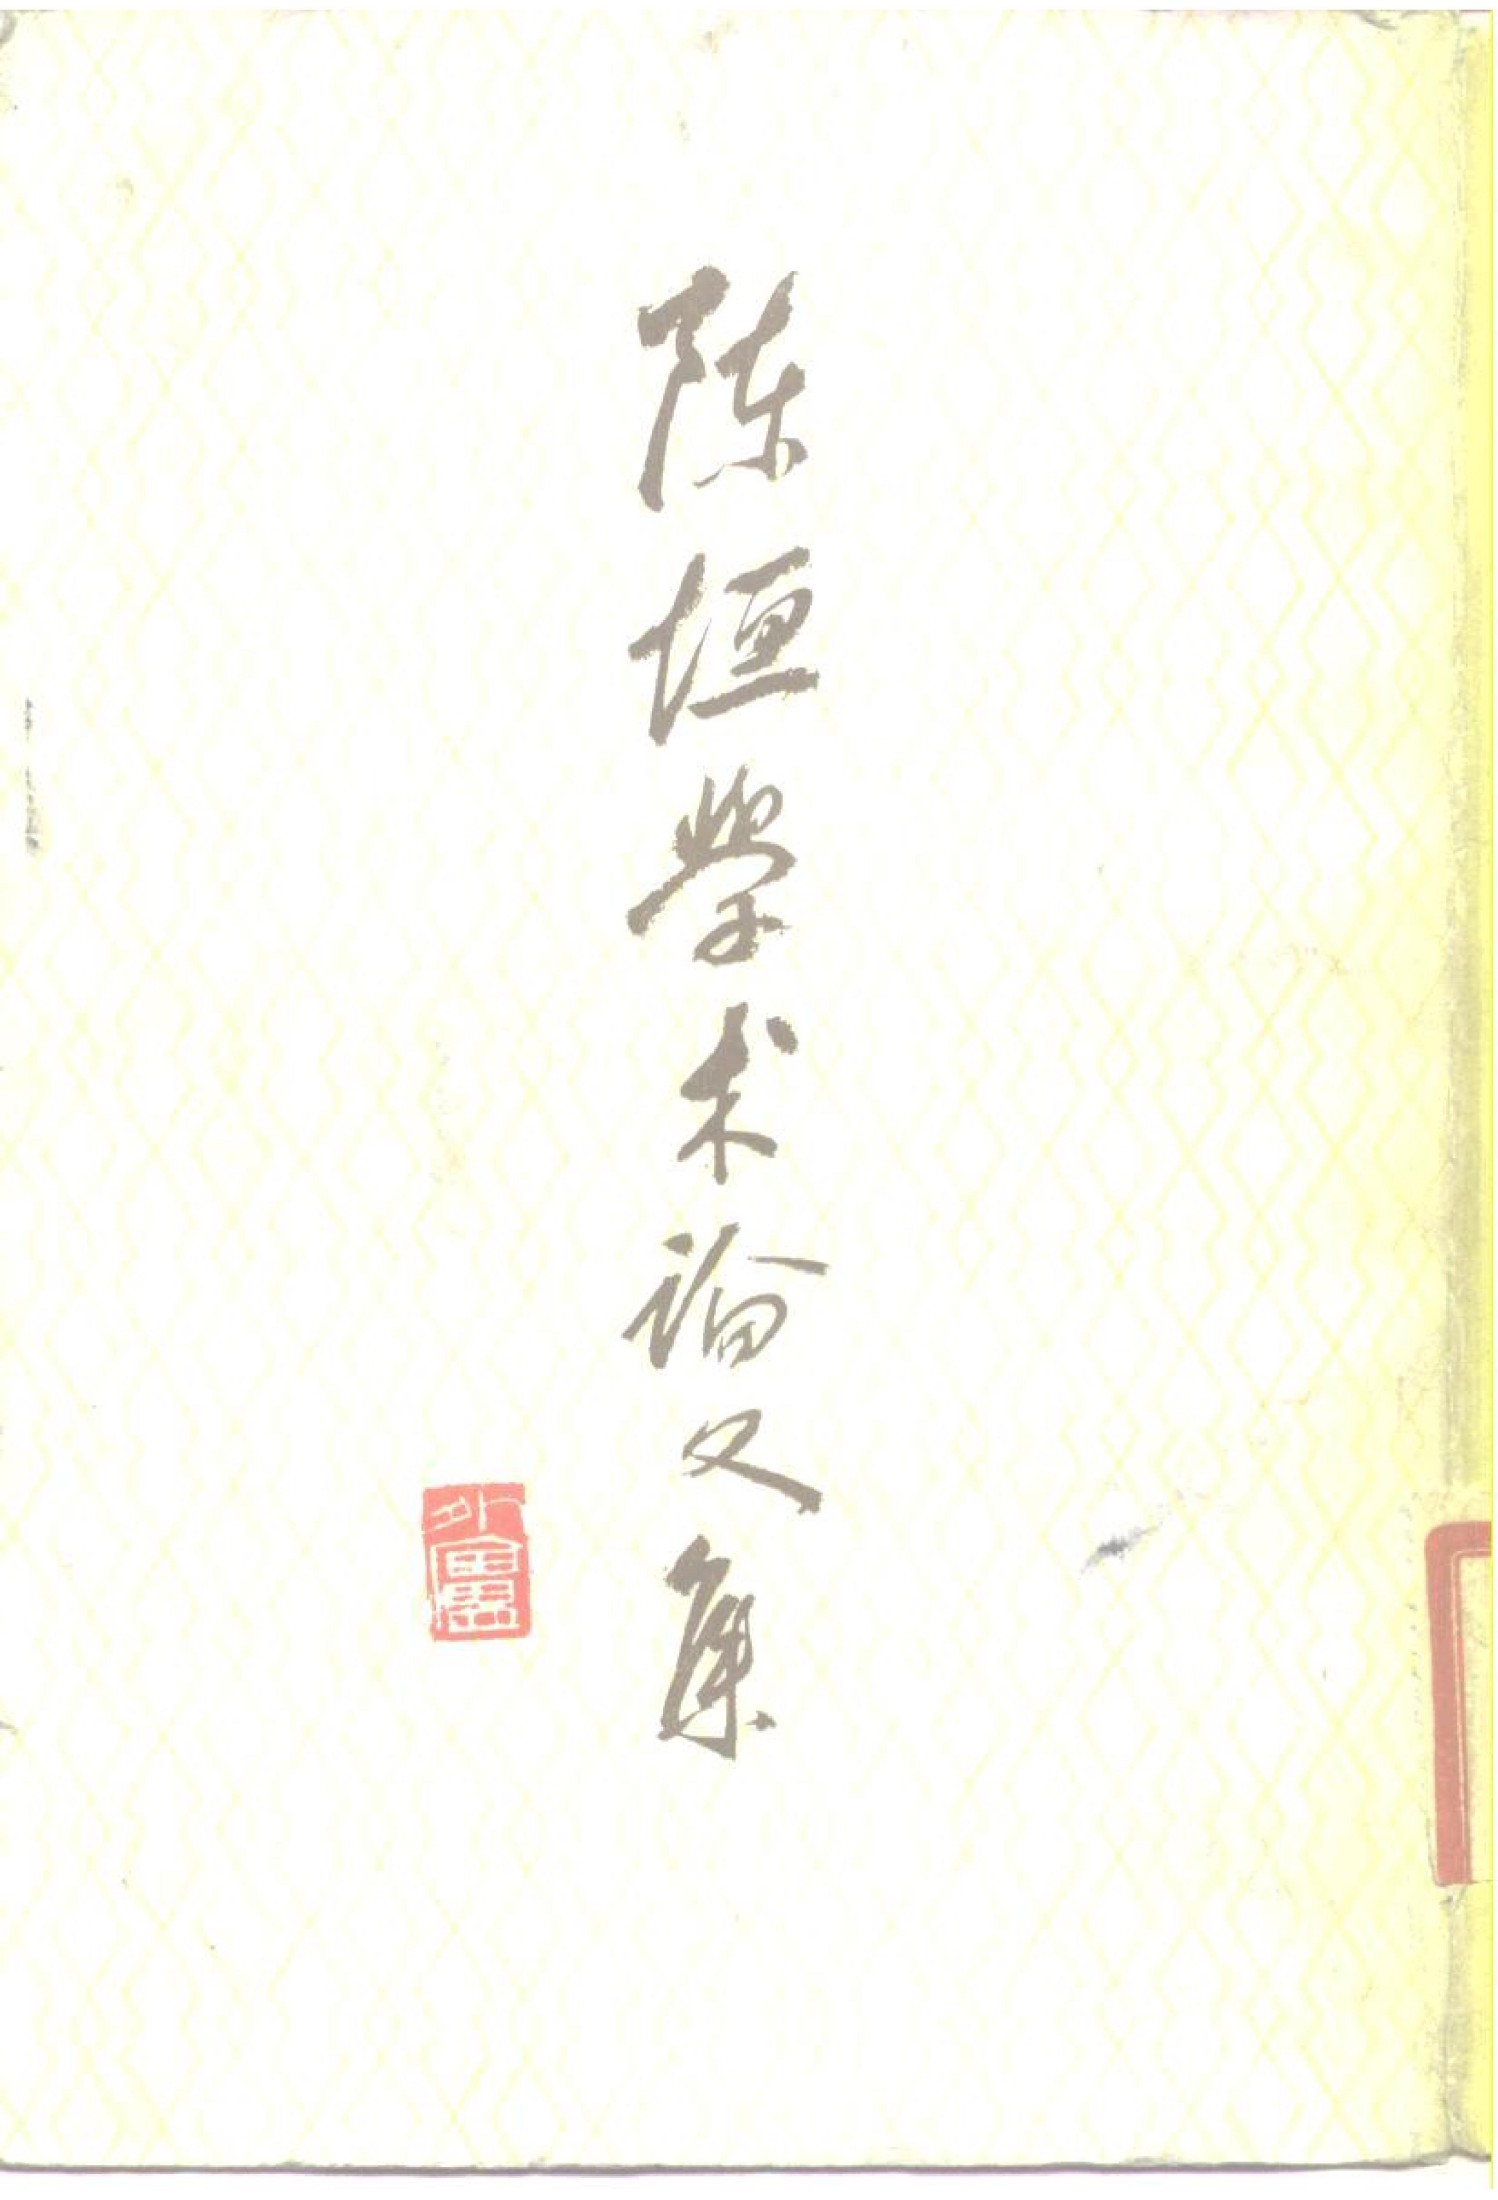 陈垣学术论文集